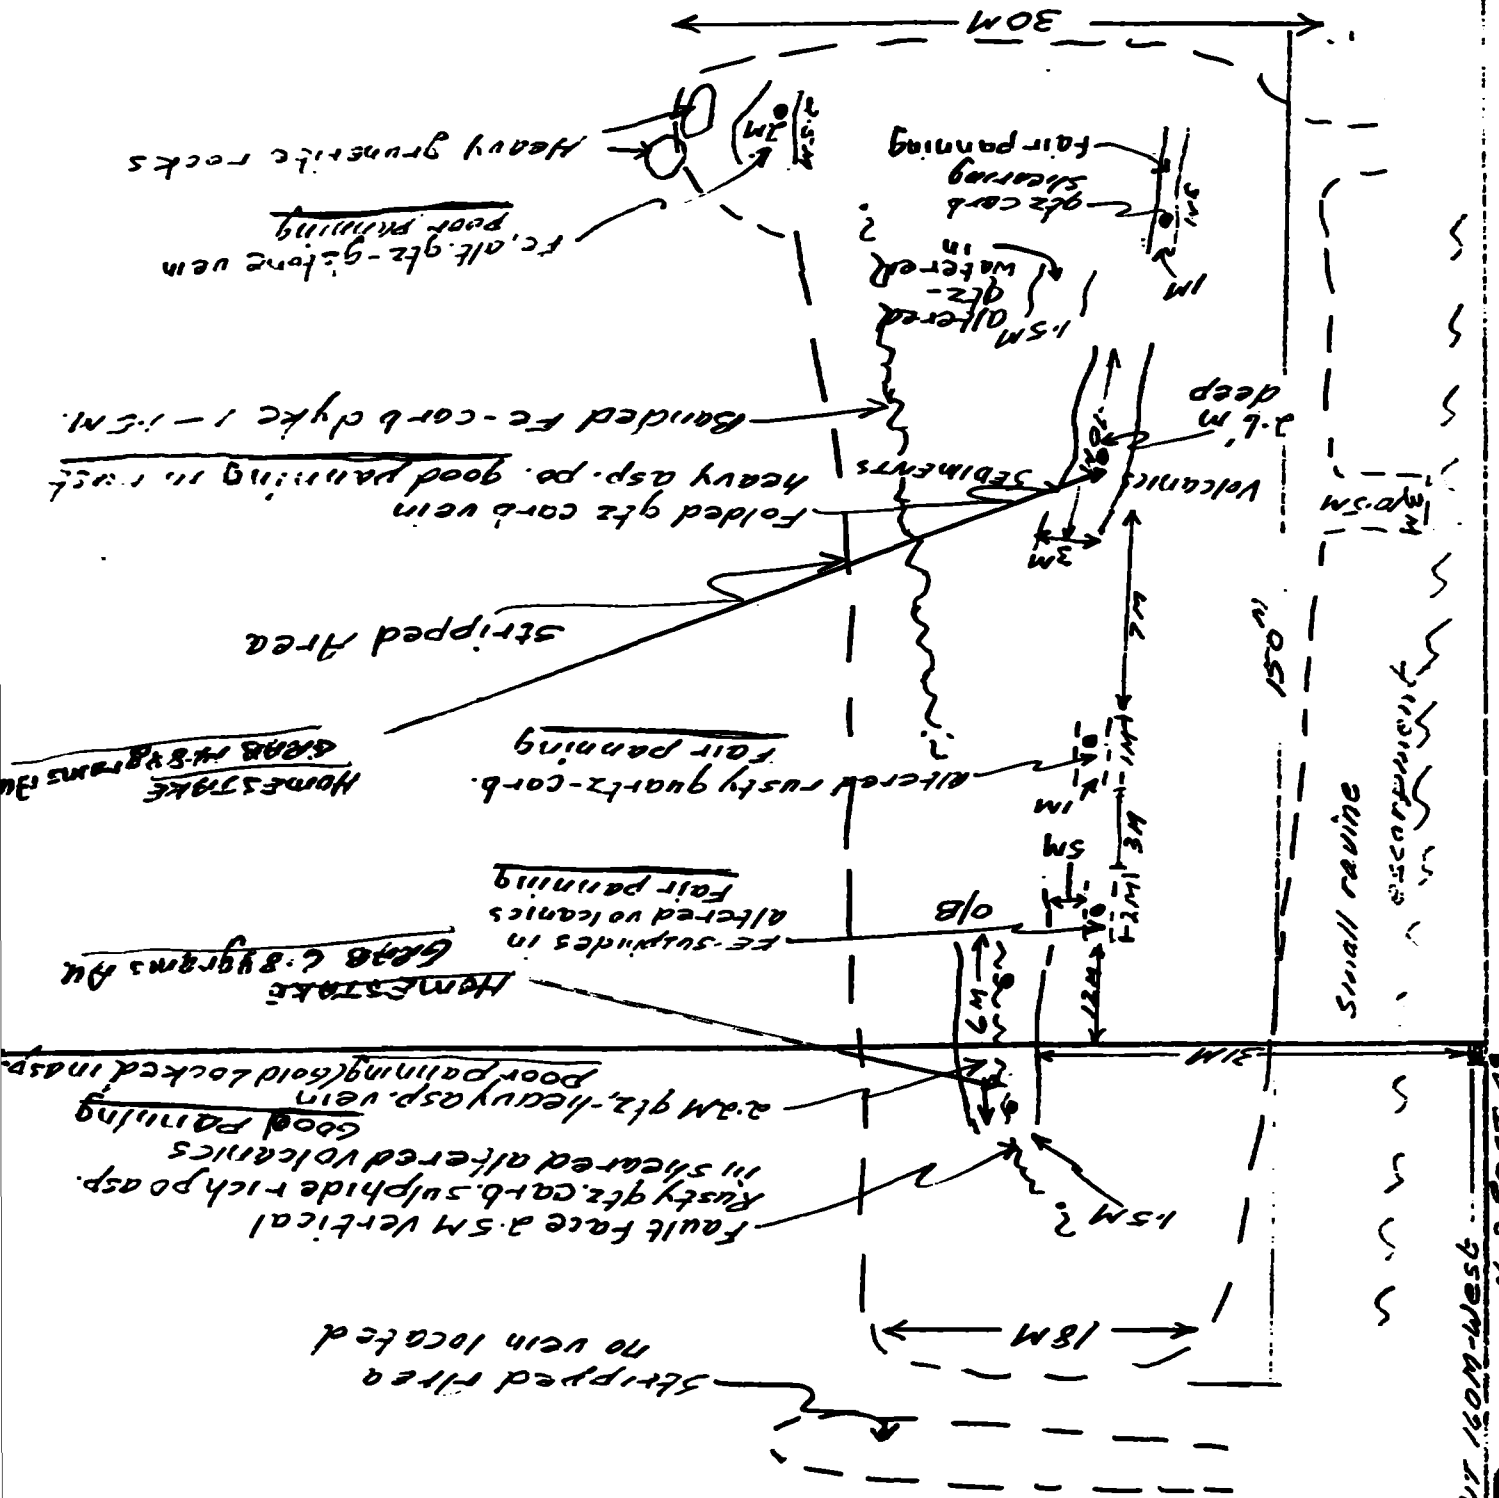 Stripped Area
no vein located
18M
1.5M
?
Fault face 2.5M vertical
Rusty qtz. carb. sulphide rich po asp.
in sheared altered volcanics
Good Panning
2.2M qtz-heavy asp. vein
poor panning (Gold Locked in asp.
31M
HOMESTAKE
GRAB 6.8 grams Au
12M
6M
small ravine
FE-sulphides in
altered volcanics
Fair panning
O/B
2M
5M
3M
1M
altered rusty quartz-carb.
Fair panning
1M
HOMESTAKE
GRAB 14.84 grams Au
?
7M
150 M
Stripped Area
3M
Folded qtz carb vein
heavy asp. po. good panning in
SEDIMENTS
Volcanics
3M
10.5M
Banded FE-carb dyke 1-1.5M.
2.6 m
deep
1.5M
altered
qtz-
watered
in
?
1M
3M
qtz carb
shearing
Fair panning
Fe, alt. qtz-
vein
poor panning
Heavy gruneritic rocks
2M
2.5M
30M
160M-West